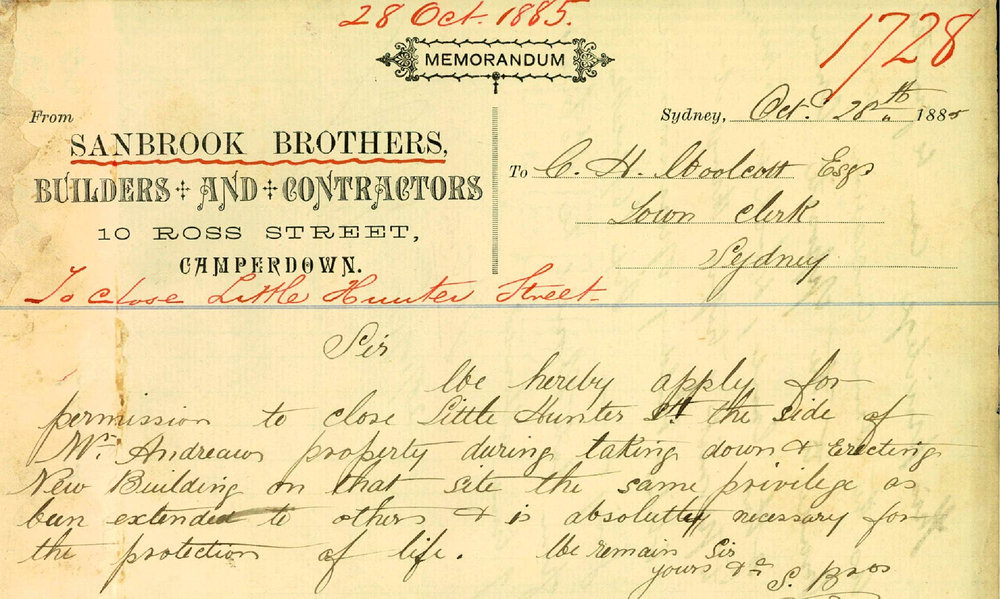 28 Oct. 1885.
1728
MEMORANDUM
From
SANBROOK BROTHERS,
BUILDERS AND CONTRACTORS
10 ROSS STREET,
CAMPERDOWN.
Sydney, Oct. 28th 1885
To C. H. Woolcott Esqr
Town Clerk
Sydney
To close Little Hunter Street.
Sir
We hereby apply for
permission to close Little Hunter St the side of
Mr. Andreaws property during taking down & Erecting
New Building on that site the same privilege as
been extended to others & is absolutly necessary for
the protection of life. We remain Sir
yours &c S. Bros